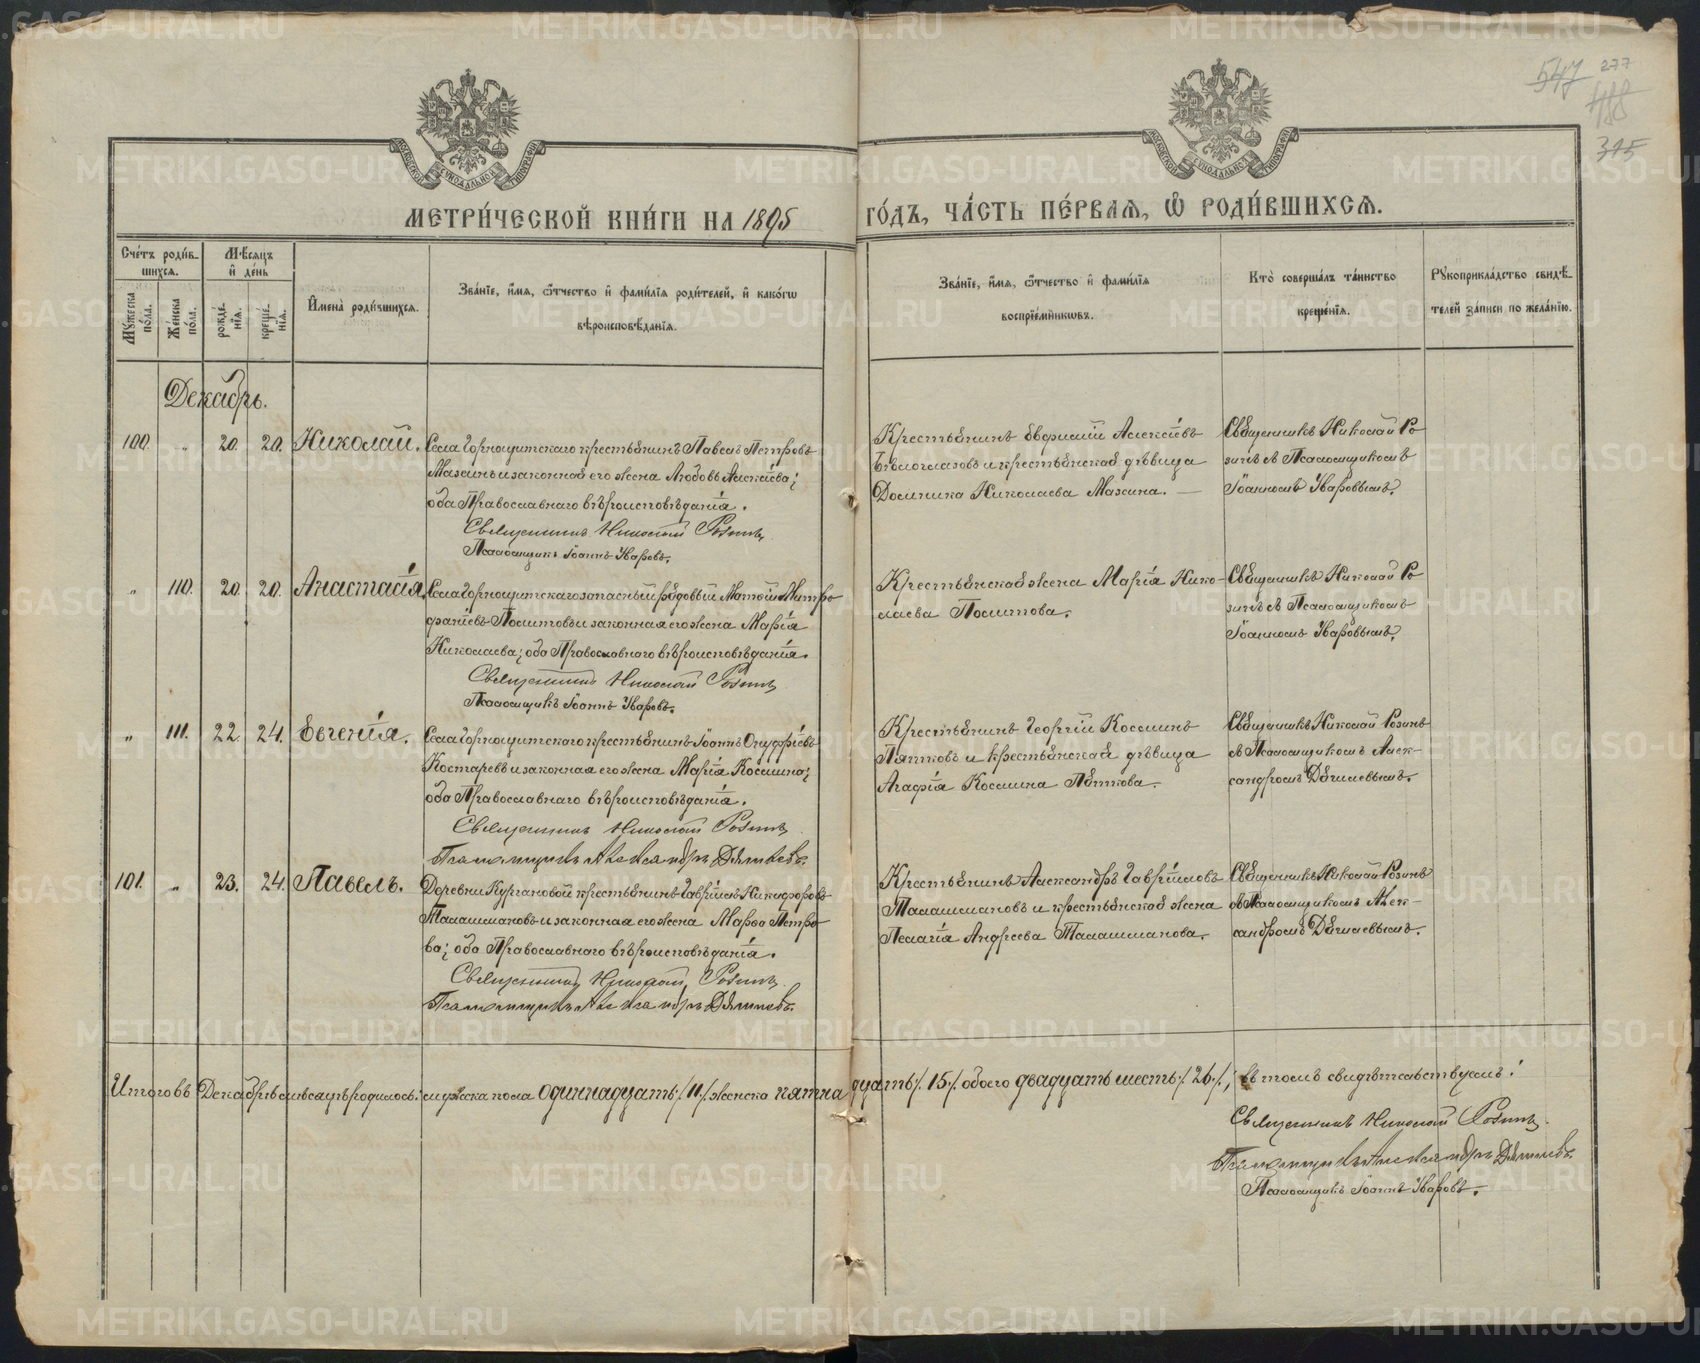 МЕТРИ́ЧЕСКОЙ КНИ́ГИ НА 1895 ГО́ДЪ, ЧА́СТЬ ПЕ́РВАЯ, Ѽ РОДИ́ВШИХСЯ.
547 277
488
315
Сче́тъ роди́в-
шихся.
Мѣ́сяцъ
и҆ де́нь
Мꙋ́жеска по́ла.
Же́нска по́ла.
рожде́-
нїя.
креще́-
нїя.
И҆мена̀ роди́вшихся.
Зва́нїе, и҆́мя, ѻ҆́тчество и҆ фами́лїя роди́телей, и҆ како́гѡ
вѣроисповѣ́данїя.
Зва́нїе, и҆́мя, ѻ҆́тчество и҆ фами́лїя
воспрїе́мникѡвъ.
Кто̀ соверша́лъ та́инство
креще́нїя.
Рꙋкоприкла́дство свидѣ́-
телей за́писи по жела́нїю.
Декабрь.
100. „ 20. 20. Николай.
Села Горнощитскаго крестьянинъ Павелъ Петровъ
Мазинъ и законная его жена Любовь Алексѣева;
оба Православнаго вѣроисповѣданія.
Священникъ Николай Розинъ
Псаломщикъ Іоаннъ Уваровъ.
Крестьянинъ Евфимій Алексѣевъ
Бѣлоглазовъ и крестьянская дѣвица
Домника Николаева Мазина. —
Священникъ Николай Ро-
зинъ съ Псаломщикомъ
Іоанномъ Уваровымъ.
„ 110. 20. 20. Анастасія.
Села Горнощитскаго запасный рядовый Матѳій Митро-
фаніевъ Посмитовъ и законная его жена Марія
Николаева; оба Православнаго вѣроисповѣданія.
Священникъ Николай Розинъ
Псаломщикъ Іоаннъ Уваровъ.
Крестьянская жена Марія Нико-
лаева Посмитова.
Священникъ Николай Ро-
зинъ съ Псаломщикомъ
Іоанномъ Уваровымъ.
„ 111. 22. 24. Евгенія.
Села Горнощитскаго крестьянинъ Іоаннъ Онуфріевъ
Костаревъ и законная его жена Марія Косьмина;
оба Православнаго вѣроисповѣданія.
Священникъ Николай Розинъ
Псаломщикъ Александръ Дягилевъ.
Крестьянинъ Георгій Косьминъ
Пятковъ и крестьянская дѣвица
Агафія Косьмина Пяткова.
Священникъ Николай Розинъ
съ Псаломщикомъ Алек-
сандромъ Дягилевымъ.
101. „ 23. 24. Павелъ.
Деревни Кургановой крестьянинъ Гавріилъ Никифоровъ
Талашмановъ и законная его жена Марѳа Петро-
ва; оба Православнаго вѣроисповѣданія.
Священникъ Николай Розинъ
Псаломщикъ Александръ Дягилевъ.
Крестьянинъ Александръ Гавріиловъ
Талашмановъ и крестьянская жена
Пелагія Андреева Талашманова.
Священникъ Николай Розинъ
съ Псаломщикомъ Алек-
сандромъ Дягилевымъ.
Итого въ Декабрѣ мѣсяцѣ родилось: мужеска пола одиннадцать /11/ женска пятнадцать /15/ обоего двадцать шесть /26/; въ томъ свидѣтельствуемъ:
Священникъ Николай Розинъ.
Псаломщикъ Александръ Дягилевъ.
Псаломщикъ Іоаннъ Уваровъ.
METRIKI.GASO-URAL.RU